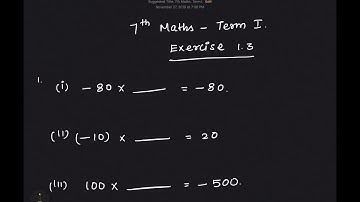 Suggested Title: 7th Maths, Terms, Edit
November 27, 2019 at 7:58 PM
7th Maths - Term I.
Exercise 1.3
1. (i) -80 x ____ = -80.
(ii) (-10) x ____ = 20
(iii) 100 x ____ = -500.